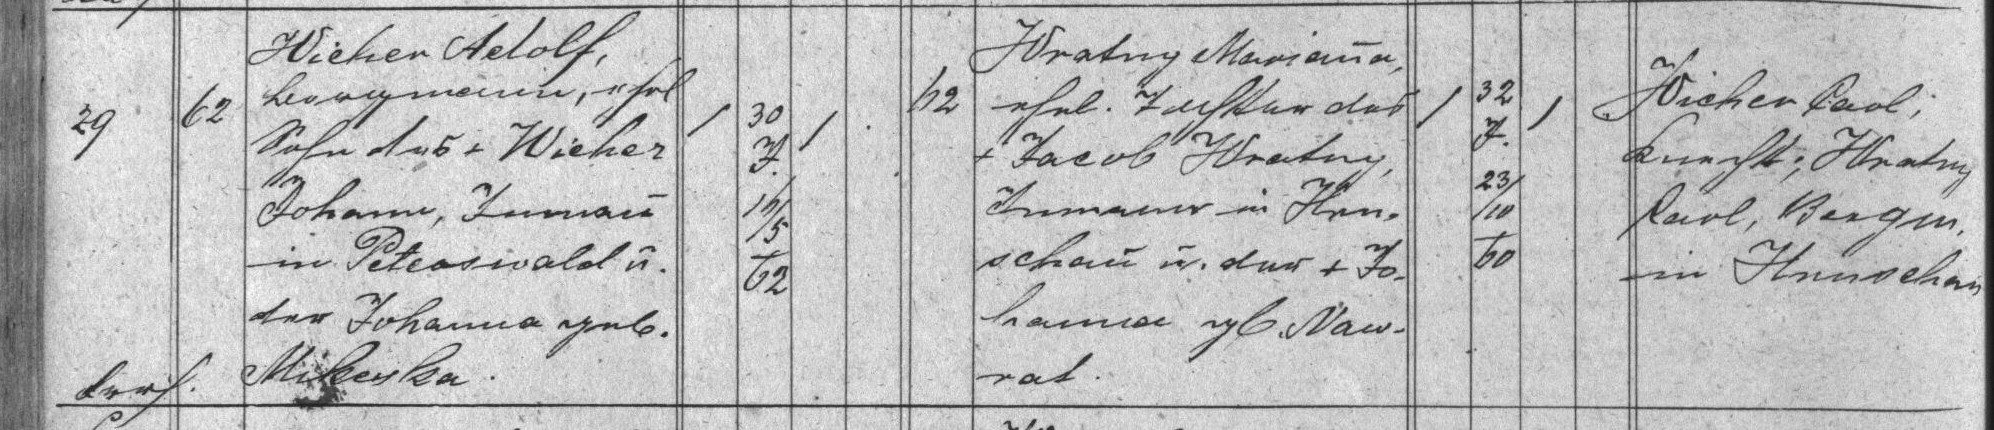 29
62
Wicher Adolf,
bergmann, ehel
Sohn des + Wicher
Johann, Inmañ
in Peterswald ũ.
der Johanna geb.
Mikeska.
/
30
J.
16/5
62
/
62
Wratny Mariaña,
ehel. Tochter des
+ Jacob Wratny,
Inmann in Hru-
schau ũ. der + Jo-
hanna gb. Naw-
rat.
/
32
J.
23/10
60
/
Wicher Carl,
Knecht; Wratny
Carl, Bergm.
in Hruschau